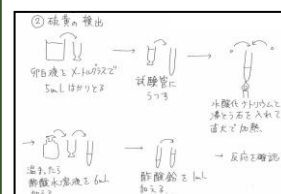 ② 硫黄の検出
卵白液をメートルグラスで
5mLはかりとる
試験管に
うつす
水酸化ナトリウムと
沸とう石を入れて
直火で加熱.
温まったら
酢酸水溶液を6mL
加える
酢酸鉛を1mL
加える.
→ 反応を確認